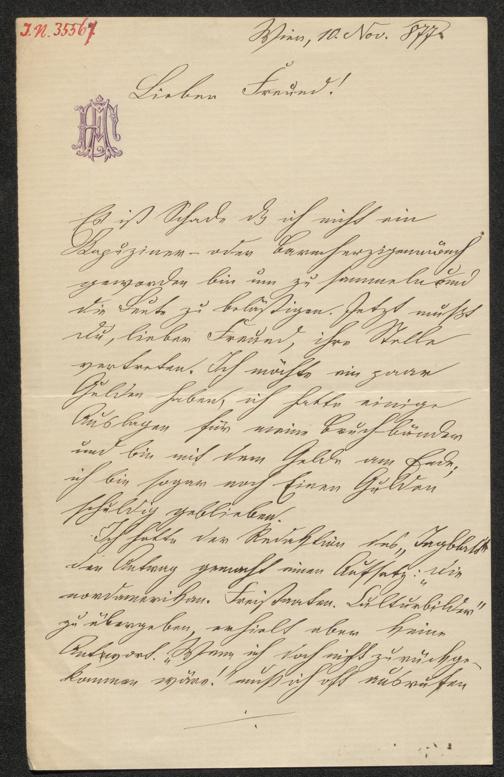 I.N. 35567
Wien, 10. Nov. 877
Lieber Freund!
Es ist Schade dß ich nicht ein
Kapuziner- oder barmherzigermönch
geworden bin um zu sammeln und
die Leute zu belästigen. Jetzt mußt
du, lieber Freund, ihre Stelle
vertreten. Ich möchte ein paar
Gulden haben, ich hatte einige
Auslagen für meine Bruchbänder
und bin mit dem Gelde am Ende,
ich bin sogar noch Einen Gulden
schuldig geblieben.
Ich hatte der Redaktion des „Tagblatt"
den Antrag gemacht einen Aufsatz: „Die
nordamerikan. Freistaaten. Culturbilder"
zu übergeben, erhielt aber keine
Antwort. „Wenn ich doch nicht zurückge-
kommen wäre!" muß ich oft ausrufen